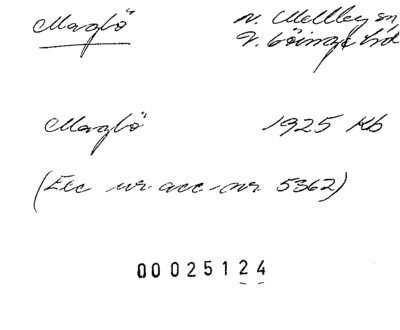 Maglö
N. Mellby sn,
V. Göinge hd
Maglö 1925 Kb
(Exc ur acc.-nr 5362)
00025124